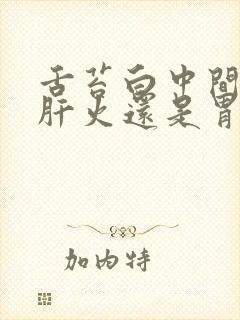 舌苔白中間
肝火還是胃
加內特